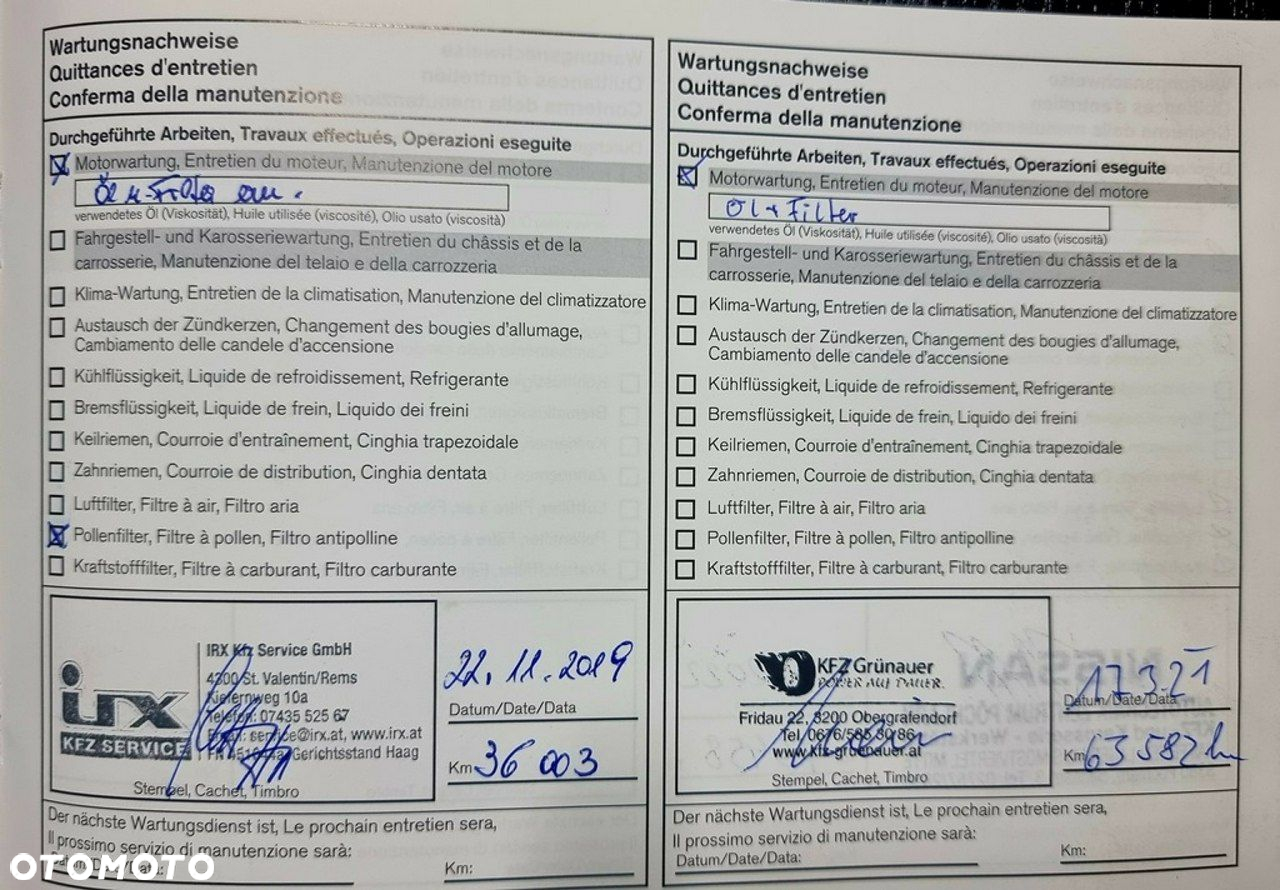 Wartungsnachweise
Quittances d'entretien
Conferma della manutenzione
Durchgeführte Arbeiten, Travaux effectués, Operazioni eseguite
Motorwartung, Entretien du moteur, Manutenzione del motore
Öl
verwendetes Öl (Viskosität), Huile utilisée (viscosité), Olio usato (viscosità)
Fahrgestell- und Karosseriewartung, Entretien du châssis et de la
carrosserie, Manutenzione del telaio e della carrozzeria
Klima-Wartung, Entretien de la climatisation, Manutenzione del climatizzatore
Austausch der Zündkerzen, Changement des bougies d'allumage,
Cambiamento delle candele d'accensione
Kühlflüssigkeit, Liquide de refroidissement, Refrigerante
Bremsflüssigkeit, Liquide de frein, Liquido dei freini
Keilriemen, Courroie d'entraînement, Cinghia trapezoidale
Zahnriemen, Courroie de distribution, Cinghia dentata
Luftfilter, Filtre à air, Filtro aria
Pollenfilter, Filtre à pollen, Filtro antipolline
Kraftstofffilter, Filtre à carburant, Filtro carburante
irx
KFZ SERVICE
IRX Kfz Service GmbH
4300 St. Valentin/Rems
Kiefernweg 10a
Telefon: 07435 525 67
Email: service@irx.at, www.irx.at
Gerichtsstand Haag
Stempel, Cachet, Timbro
22.11.2019
Datum/Date/Data
Km 36 003
Der nächste Wartungsdienst ist, Le prochain entretien sera,
Il prossimo servizio di manutenzione sarà:
Datum/Date/Data:
Km:
Wartungsnachweise
Quittances d'entretien
Conferma della manutenzione
Durchgeführte Arbeiten, Travaux effectués, Operazioni eseguite
Motorwartung, Entretien du moteur, Manutenzione del motore
Öl + Filter
verwendetes Öl (Viskosität), Huile utilisée (viscosité), Olio usato (viscosità)
Fahrgestell- und Karosseriewartung, Entretien du châssis et de la
carrosserie, Manutenzione del telaio e della carrozzeria
Klima-Wartung, Entretien de la climatisation, Manutenzione del climatizzatore
Austausch der Zündkerzen, Changement des bougies d'allumage,
Cambiamento delle candele d'accensione
Kühlflüssigkeit, Liquide de refroidissement, Refrigerante
Bremsflüssigkeit, Liquide de frein, Liquido dei freini
Keilriemen, Courroie d'entraînement, Cinghia trapezoidale
Zahnriemen, Courroie de distribution, Cinghia dentata
Luftfilter, Filtre à air, Filtro aria
Pollenfilter, Filtre à pollen, Filtro antipolline
Kraftstofffilter, Filtre à carburant, Filtro carburante
KFZ Grünauer
POWER AUF DAUER.
Fridau 22, 3200 Obergrafendorf
Tel. 0676/585 80 86
www.kfz-gruenauer.at
Stempel, Cachet, Timbro
17.3.21
Datum/Date/Data
Km 63 582 km
Der nächste Wartungsdienst ist, Le prochain entretien sera,
Il prossimo servizio di manutenzione sarà:
Datum/Date/Data:
Km:
OTOMOTO